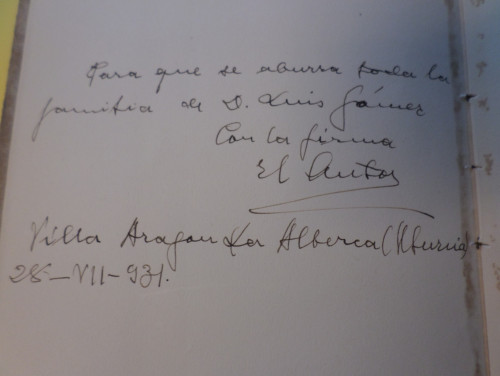 Para que se aburra toda la
familia de D. Luis Gómez
Con la firma
El Autor
Villa Aragon La Alberca (Murcia)
28-VII-931.